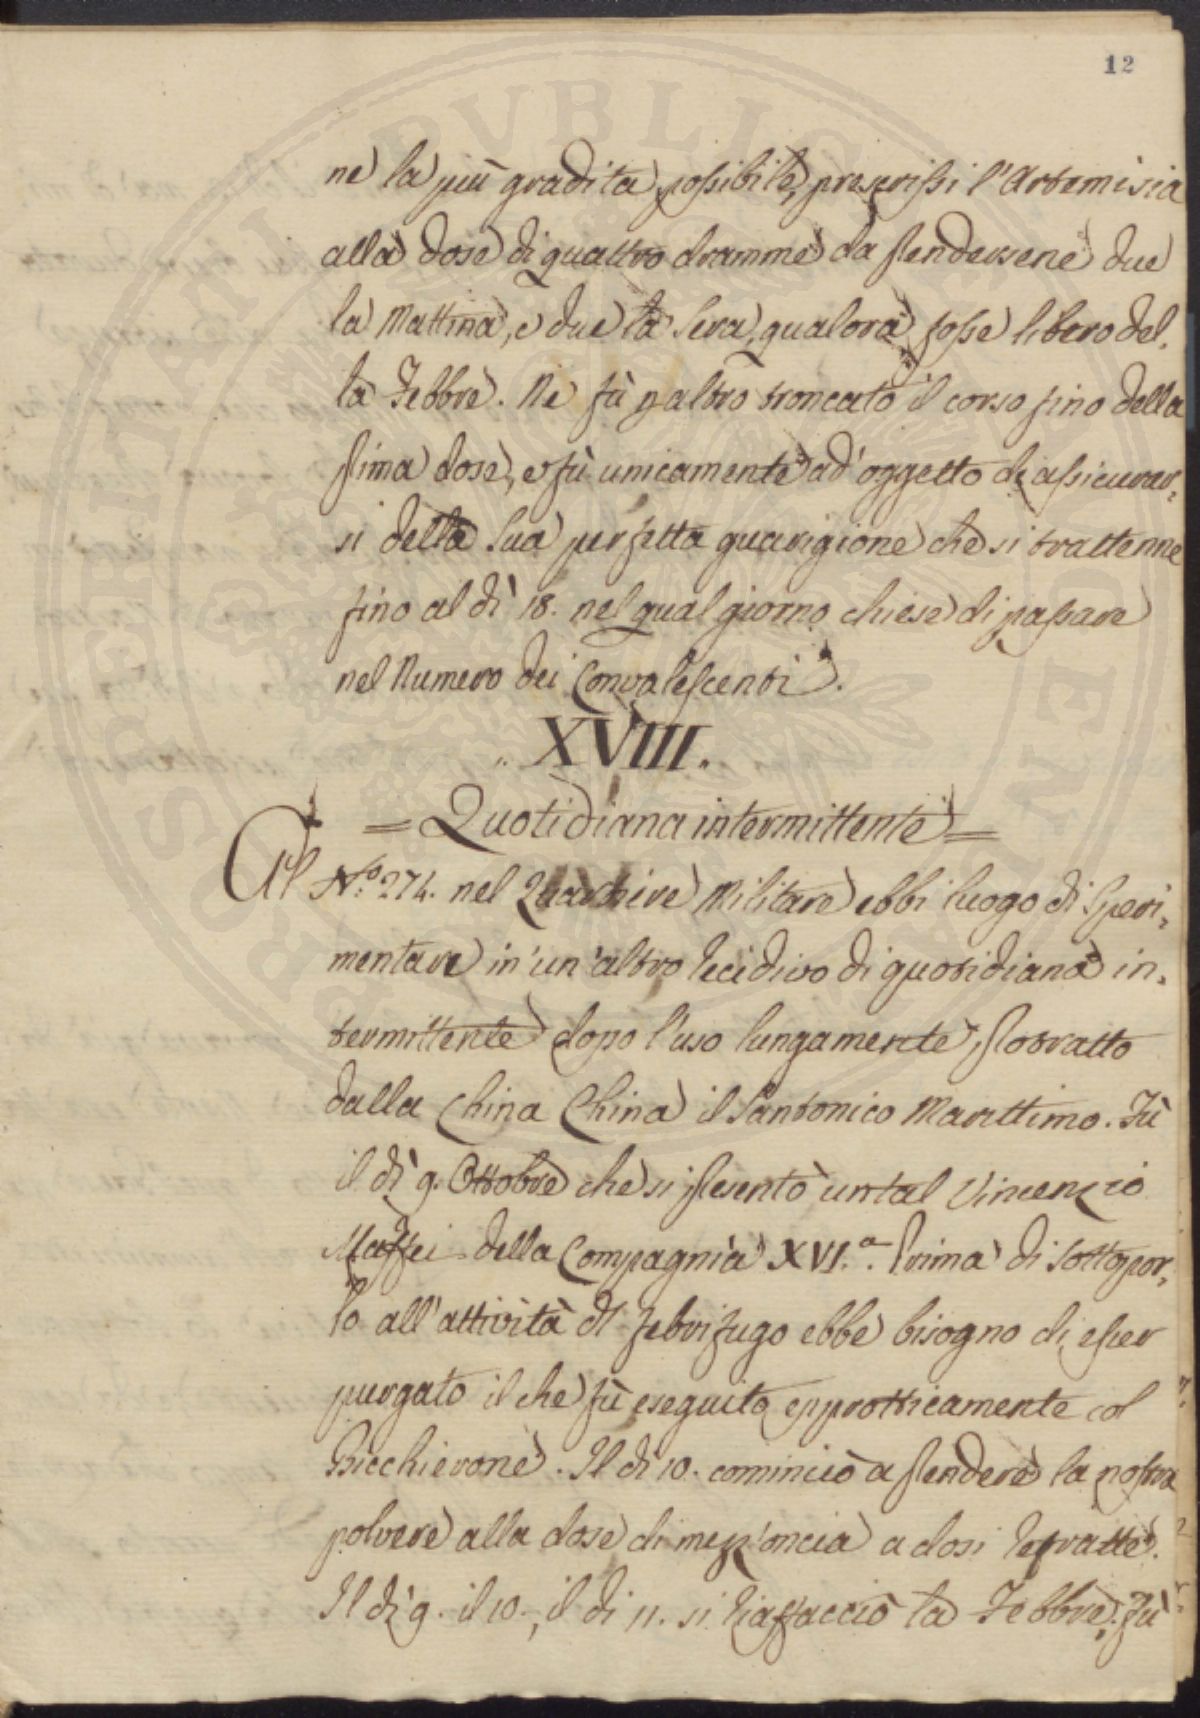 12
ne la più gradita possibile, prescrissi l'Artemisia
alla dose di quattro dramme da prendersene due
la Mattina, e due la Sera, qualora fosse libero del,
la Febbre. Ne fù p altro troncato il corso fino della
prima dose, e fù unicamente ad'oggetto di assicurar,
si della Sua perfetta guarigione che si trattenne
fino al dì 18. nel qual giorno chiese di passare
nel Numero dei Convalescenti.
XVIII.
= Quotidiana intermittente =
Al N.º 274. nel Quartiere Militare ebbi luogo di Speri,
mentare in'un'altro recidivo di quotidiana in,
termittente dopo l'uso lungamente protratto
dalla China China il Santonico Marittimo. Fù
il dì 9. Ottobre che si presentò un tal Vincenzio
Maffei della Compagnia XVI.a. Prima di Sottopor,
lo all'attività dl febrifugo ebbe bisogno di esser
purgato il che fù eseguito epprotticamente col
Bicchierone. Il dì 10. cominciò a prendere la nostra
polvere alla dose di mezz'oncia a dosi refratte.
Il dì 9. il 10., il di 11. si riaffacciò la Febbre. Fù